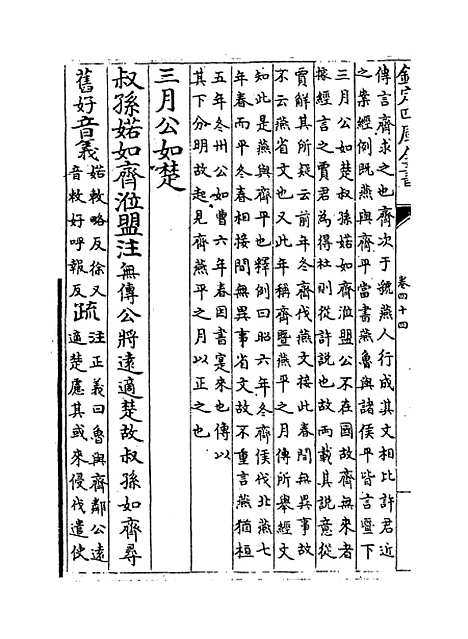 欽定四庫全書
卷四十四
傳言齊求之也齊次于虢燕人行成其文相比許君近
之案經例既燕與齊平當書燕魯與諸侯平皆言暨下
三月公如楚叔孫婼如齊涖盟公不在國故齊無來者
據經言之賈君為得杜則從許説也故兩載其説意從
賈解其所疑云前年冬齊伐燕文接此春間無異事故
不云燕省文也又此年稱齊暨燕平之月傳所舉經文
知此是燕與齊平也釋例曰昭六年冬齊侯伐北燕七
年春而平冬春相接間無異事省文故不重言燕猶桓
五年冬州公如曹六年春因書寔來也傳以
其下分明故起見齊燕平之月以正之也
三月公如楚
叔孫婼如齊涖盟注無傳公將遠適楚故叔孫如齊尋
舊好音義婼敕略反徐又音敕好呼報反疏注正義曰魯與齊鄰公遠適楚慮其或來侵伐遣使